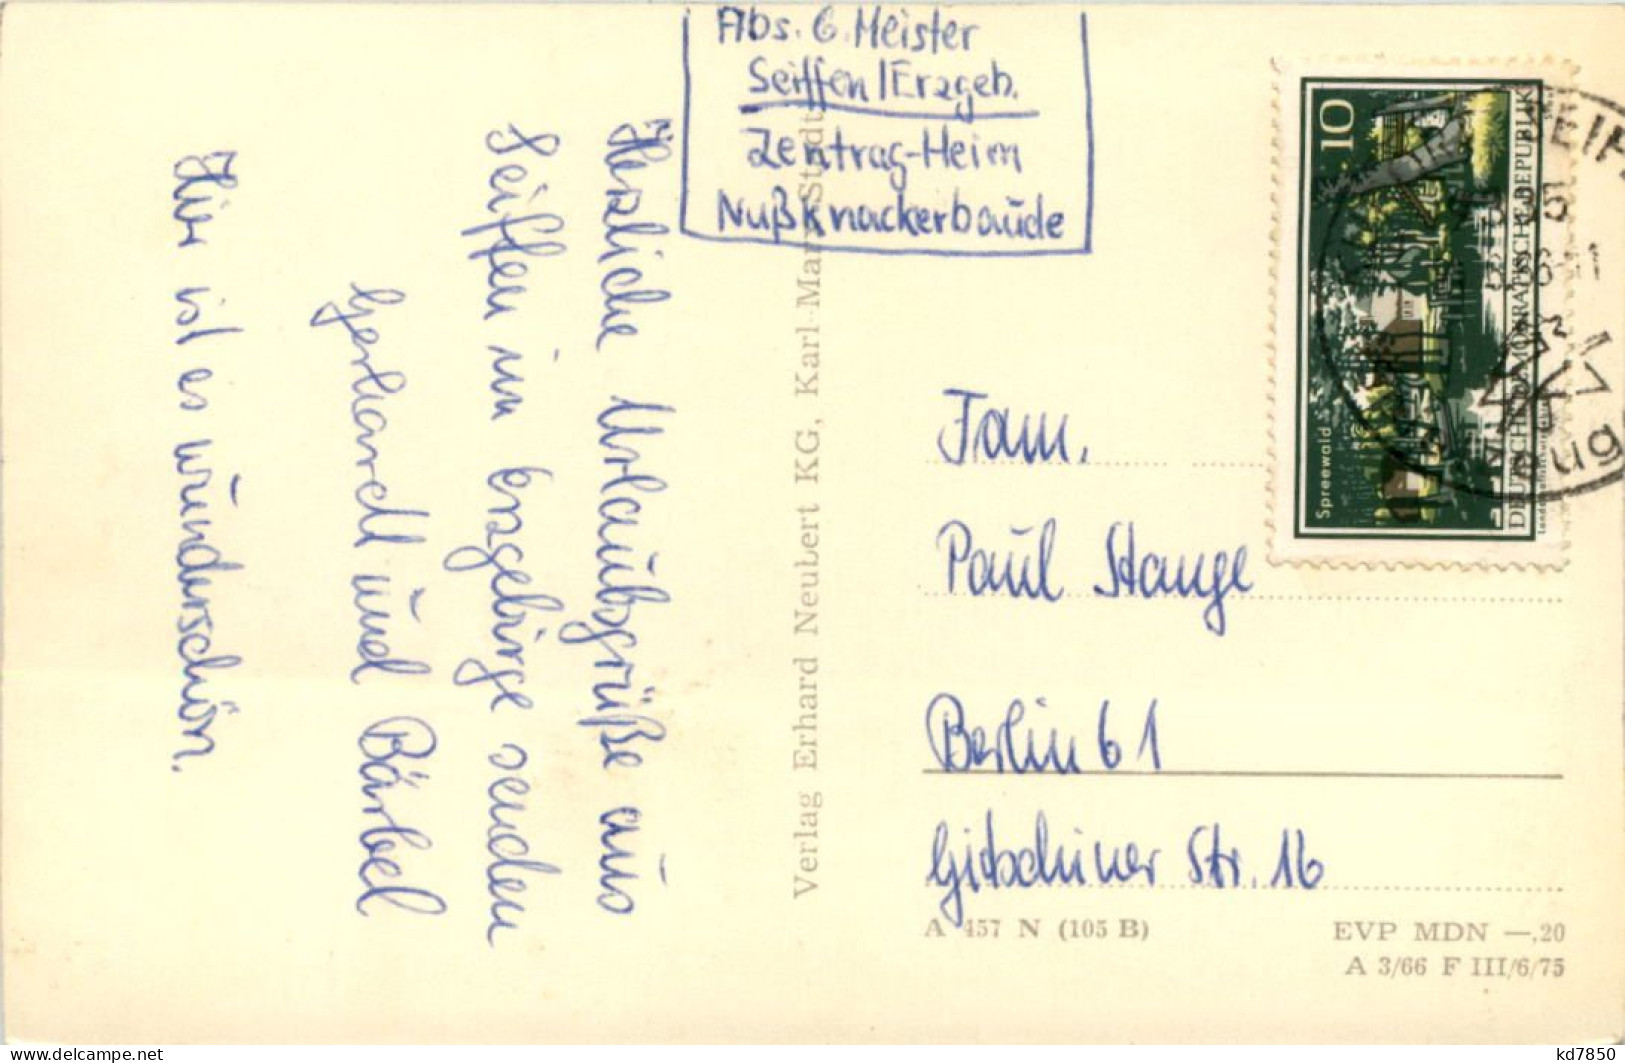 Abs. G. Meister
Seiffen/Erzgeb.
Zentrag-Heim
Nußknackerbaude
Herzliche Urlaubsgrüße aus
Seiffen im Erzgebirge senden
Gerhardt und Bärbel
Hier ist es wunderschön.
Verlag Erhard Neubert KG, Karl-Marx-Stadt
10
Spreewald
DEUTSCHE DEMOKRATISCHE REPUBLIK
Fam.
Paul Stange
Berlin 61
Gitschiner Str. 16
A 457 N (105 B)
EVP MDN —,20
A 3/66 F III/6/75
kd7850